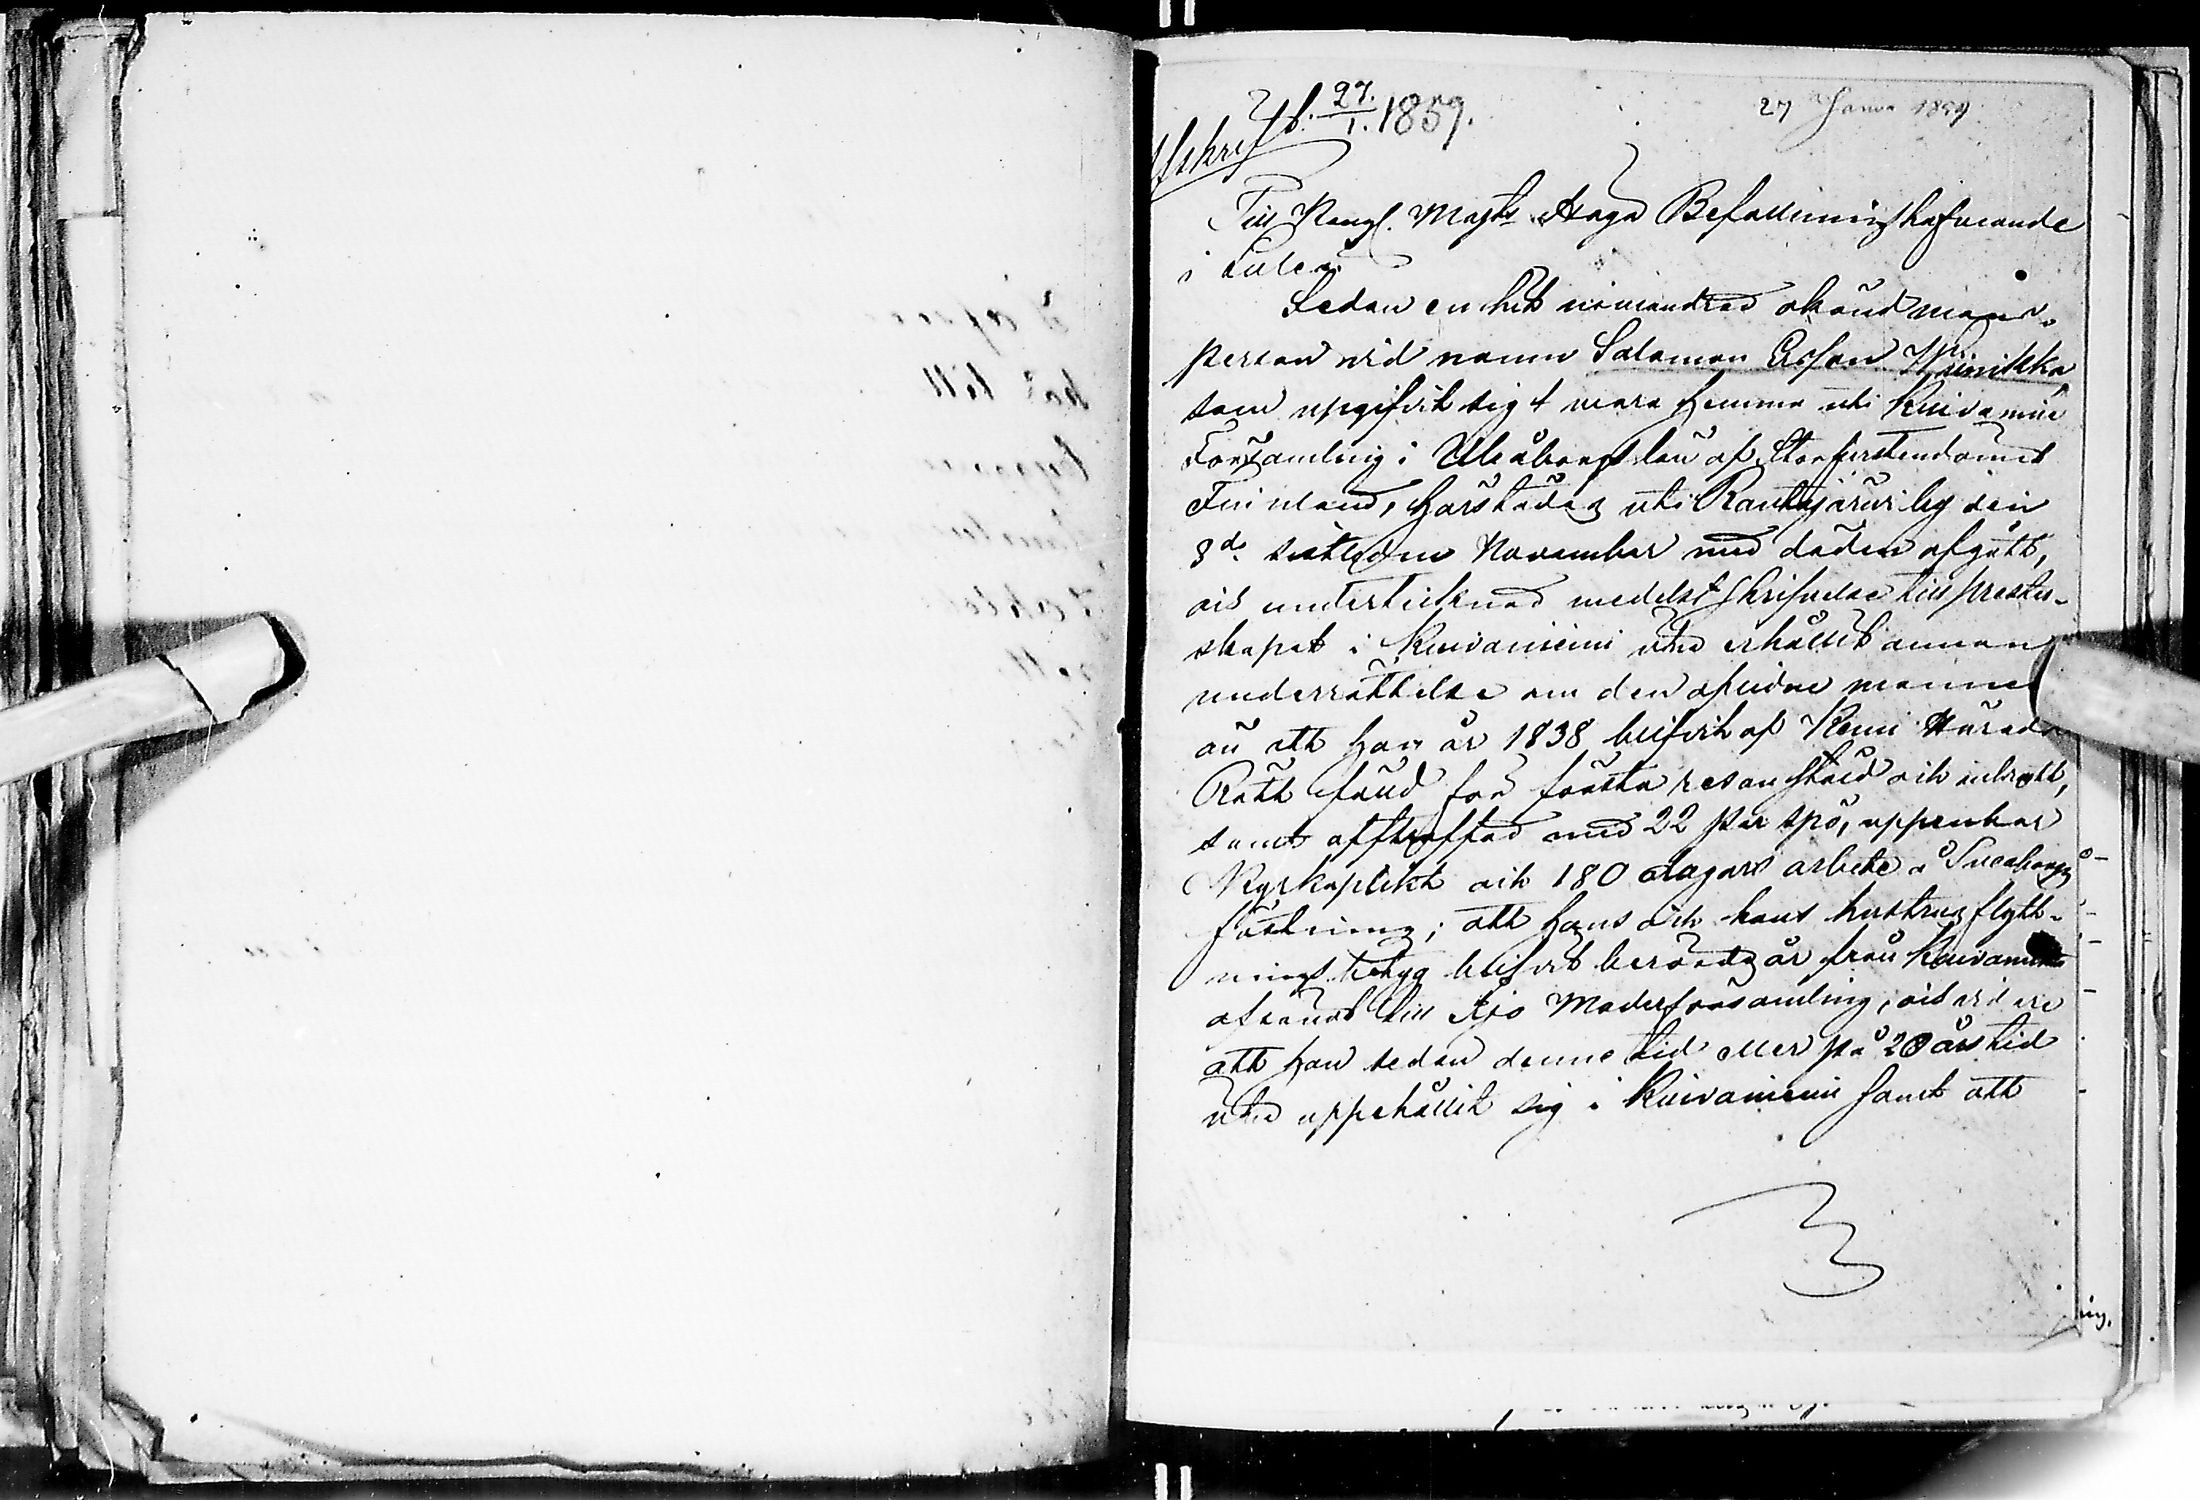 Afskrift. 27/1. 1859.
27 Janua 1859
Till Kongl. Majts Höga Befallningshafwande
i Luleå.
Sedan en hit inwandrad okänd mans-
person wid namn Salamon Ersson Wiinikka,
som uppgifwit sig wara hemma uti Kuivanie
Församling i Uleåborgs län af Storfurstendömet
Finnland, härstädes uti Rautajärwi by den
8de sistledne November med döden afgått,
och undertecknad medelst skrifwelse till prester-
skapet i Kuivaniemi icke erhållit annan
underrättelse om den aflidne mannen
än att han år 1838 blifwit af Kemi Härads
Rätt fälld för första resan stöld och inbrott,
samt afstraffad med 22 par spö, uppenbar
Kyrkoplikt och 180 dagars arbete å Sweaborgs
fästning; att hans och hans hustrus flytt-
ningsbetyg blifwit berörde år från Kuivaniemi
afsändt till Ijo Moderförsamling, och widare
att han sedan denne tid eller på 20 års tid
icke uppehållit sig i Kuivaniemi samt att